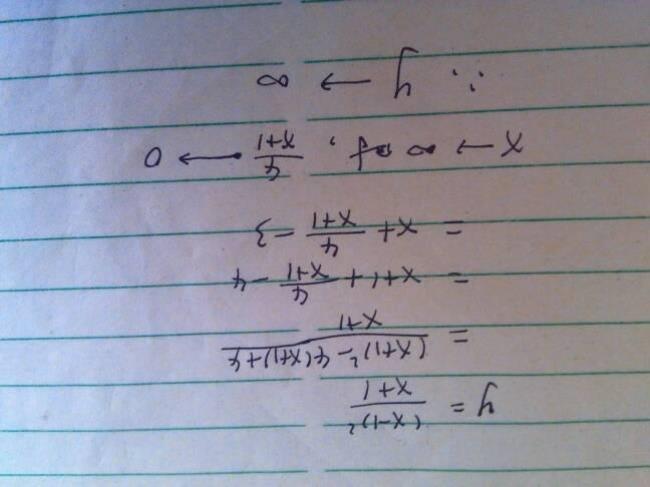 y = (x-1)²/(x+1)
= ((x+1)²-4(x+1)+4)/(x+1)
= x+1+4/(x+1)-4
= x+4/(x+1)-3
x → ∞ , 4/(x+1) → 0
∵ y → ∞